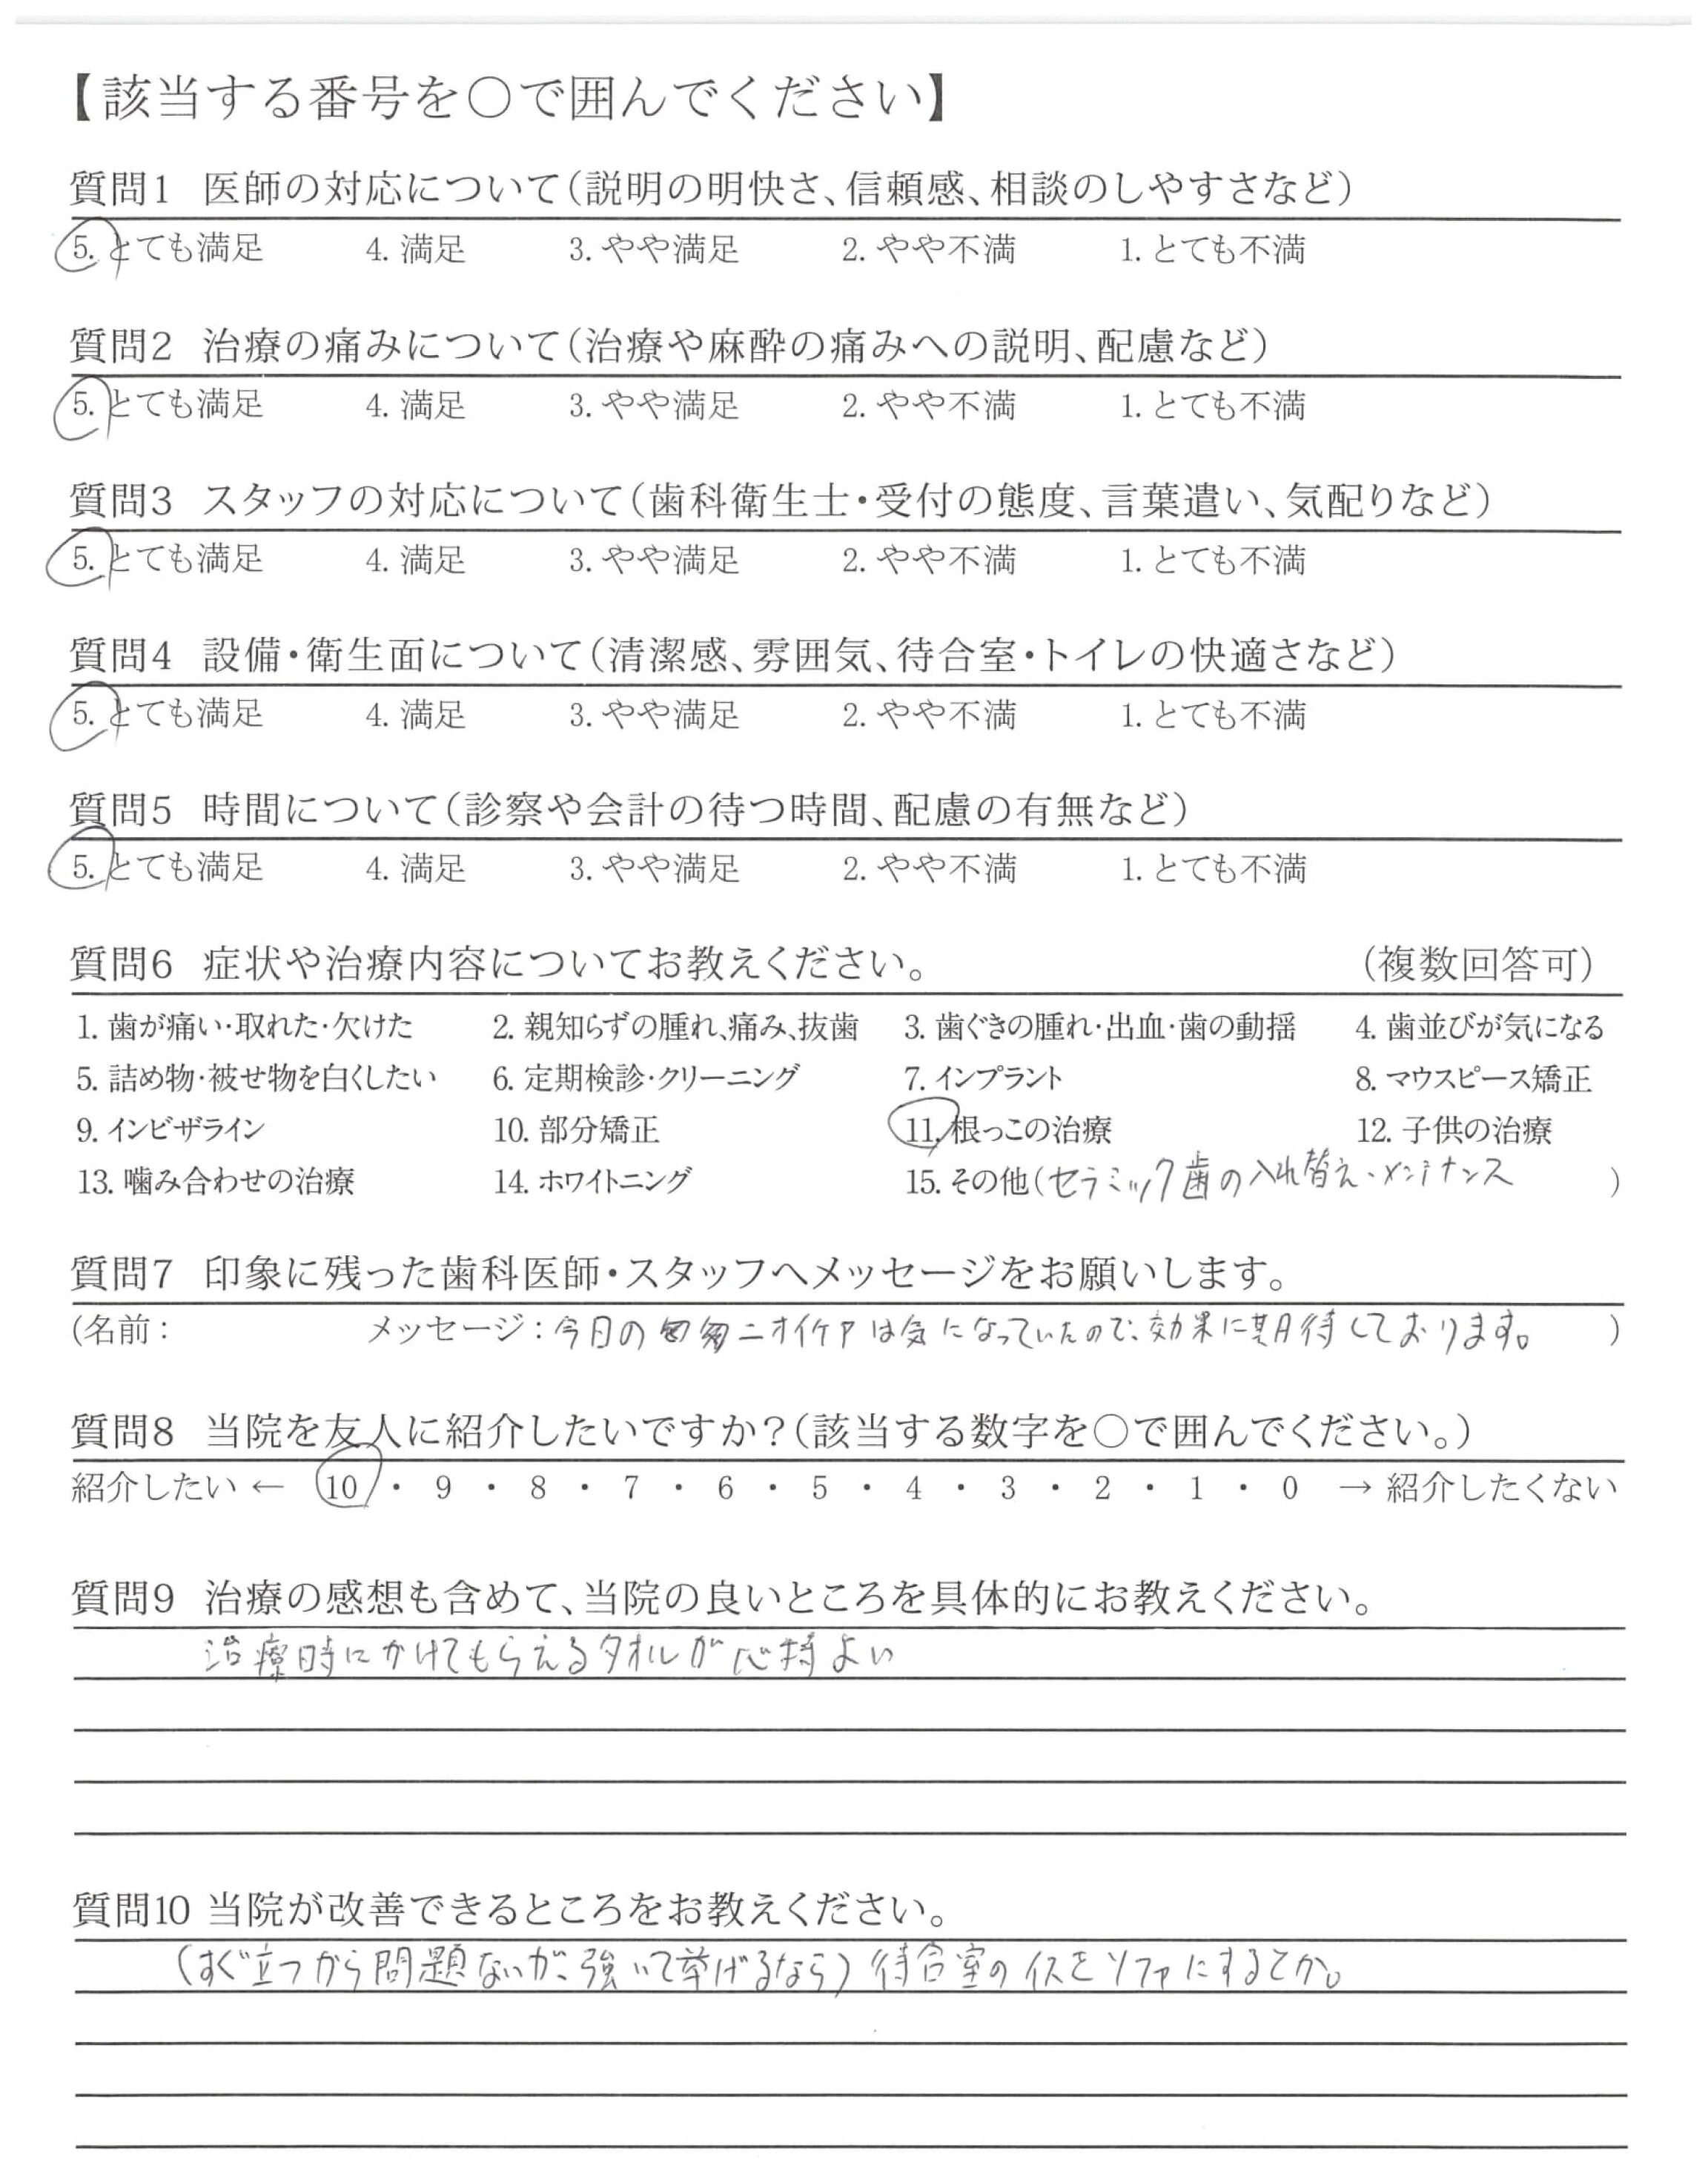 【該当する番号を〇で囲んでください】
質問1 医師の対応について(説明の明快さ、信頼感、相談のしやすさなど)
5. とても満足 4. 満足 3. やや満足 2. やや不満 1. とても不満
質問2 治療の痛みについて(治療や麻酔の痛みへの説明、配慮など)
5. とても満足 4. 満足 3. やや満足 2. やや不満 1. とても不満
質問3 スタッフの対応について(歯科衛生士・受付の態度、言葉遣い、気配りなど)
5. とても満足 4. 満足 3. やや満足 2. やや不満 1. とても不満
質問4 設備・衛生面について(清潔感、雰囲気、待合室・トイレの快適さなど)
5. とても満足 4. 満足 3. やや満足 2. やや不満 1. とても不満
質問5 時間について(診察や会計の待つ時間、配慮の有無など)
5. とても満足 4. 満足 3. やや満足 2. やや不満 1. とても不満
質問6 症状や治療内容についてお教えください。 (複数回答可)
1. 歯が痛い・取れた・欠けた 2. 親知らずの腫れ、痛み、抜歯 3. 歯ぐきの腫れ・出血・歯の動揺 4. 歯並びが気になる
5. 詰め物・被せ物を白くしたい 6. 定期検診・クリーニング 7. インプラント 8. マウスピース矯正
9. インビザライン 10. 部分矯正 11. 根っこの治療 12. 子供の治療
13. 噛み合わせの治療 14. ホワイトニング 15. その他(セラミック歯の入れ替え・メンテナンス )
質問7 印象に残った歯科医師・スタッフへメッセージをお願いします。
(名前: メッセージ:今日の ニオイケアは気になっていたので、効果に期待しております。 )
質問8 当院を友人に紹介したいですか?(該当する数字を〇で囲んでください。)
紹介したい ← 10 ・ 9 ・ 8 ・ 7 ・ 6 ・ 5 ・ 4 ・ 3 ・ 2 ・ 1 ・ 0 → 紹介したくない
質問9 治療の感想も含めて、当院の良いところを具体的にお教えください。
治療時にかけてもらえるタオルが心持よい
質問10 当院が改善できるところをお教えください。
(すぐ立つから問題ないが、強いて挙げるなら)待合室のイスをソファにするとか。